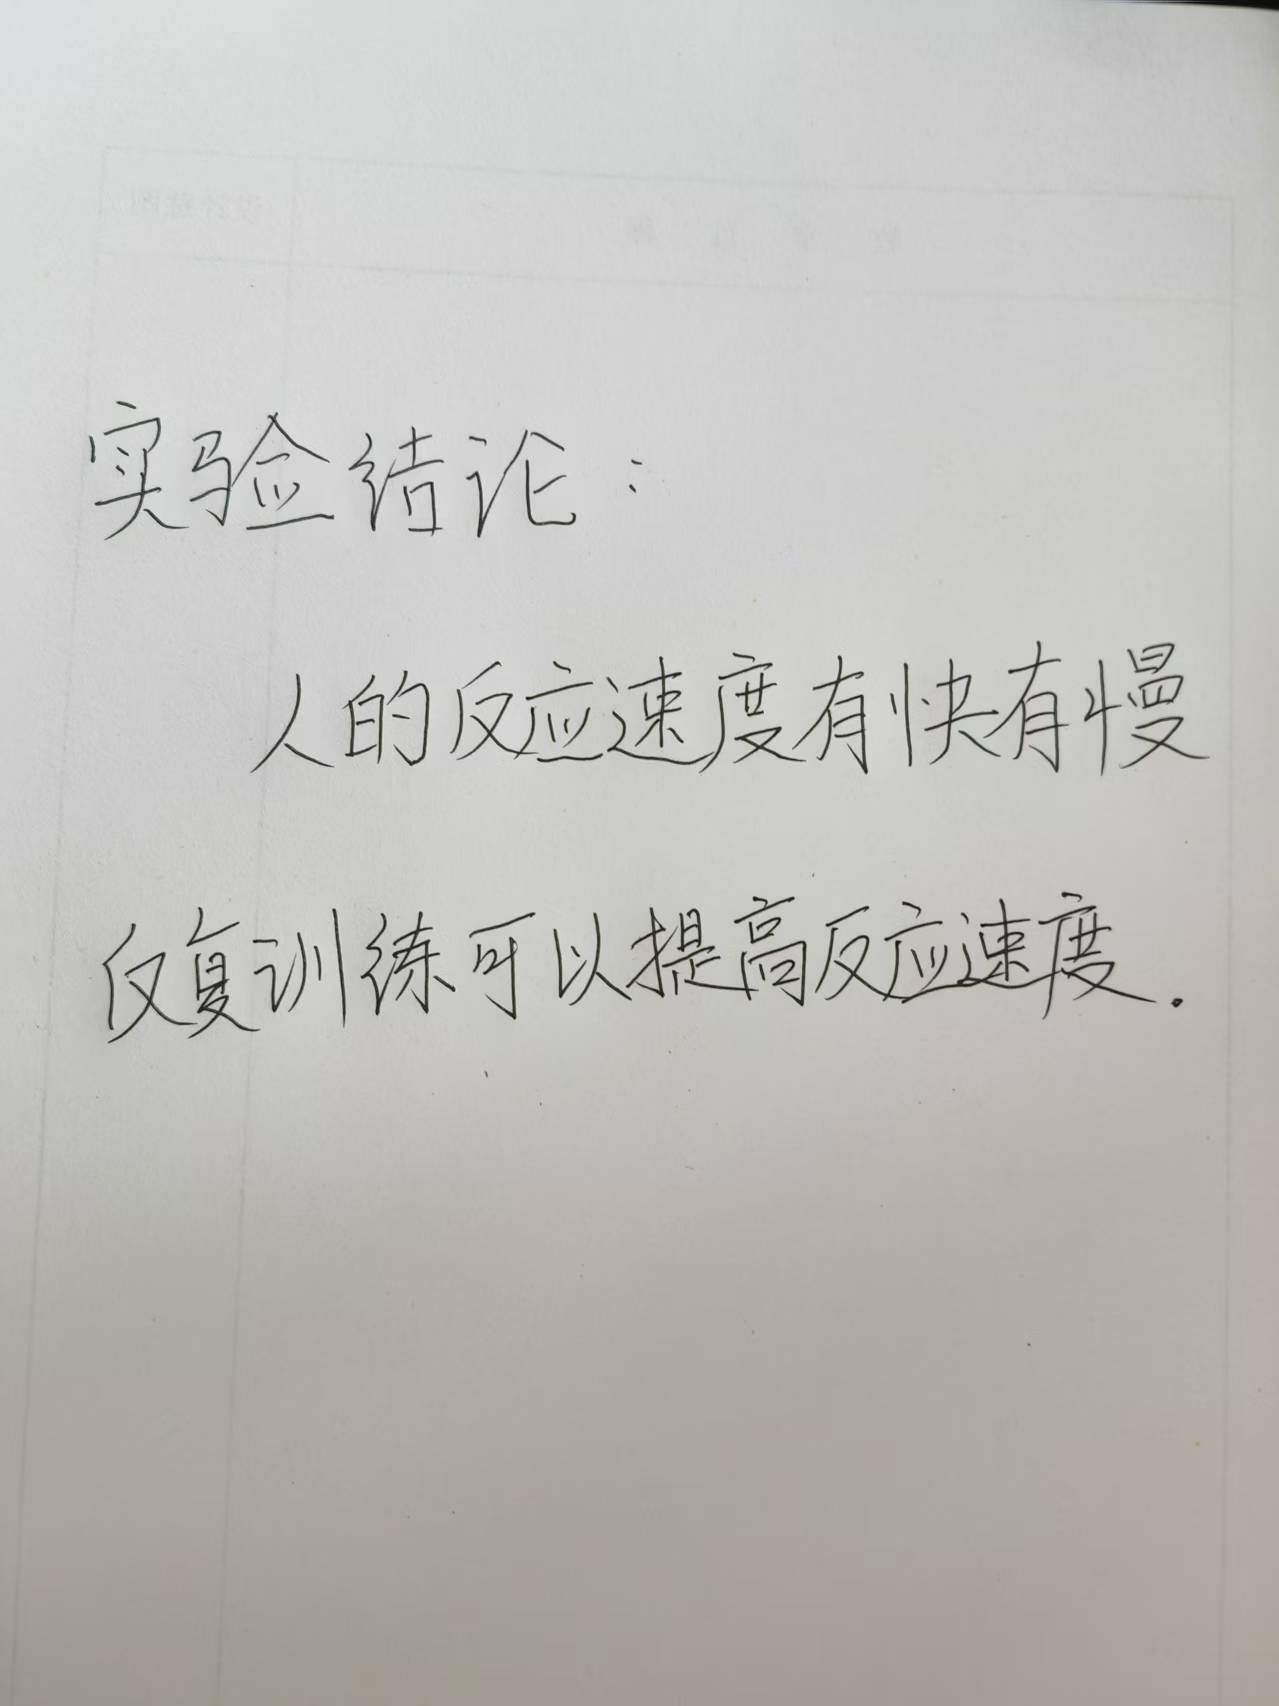 实验结论：
人的反应速度有快有慢
仅复训练可以提高反应速度.